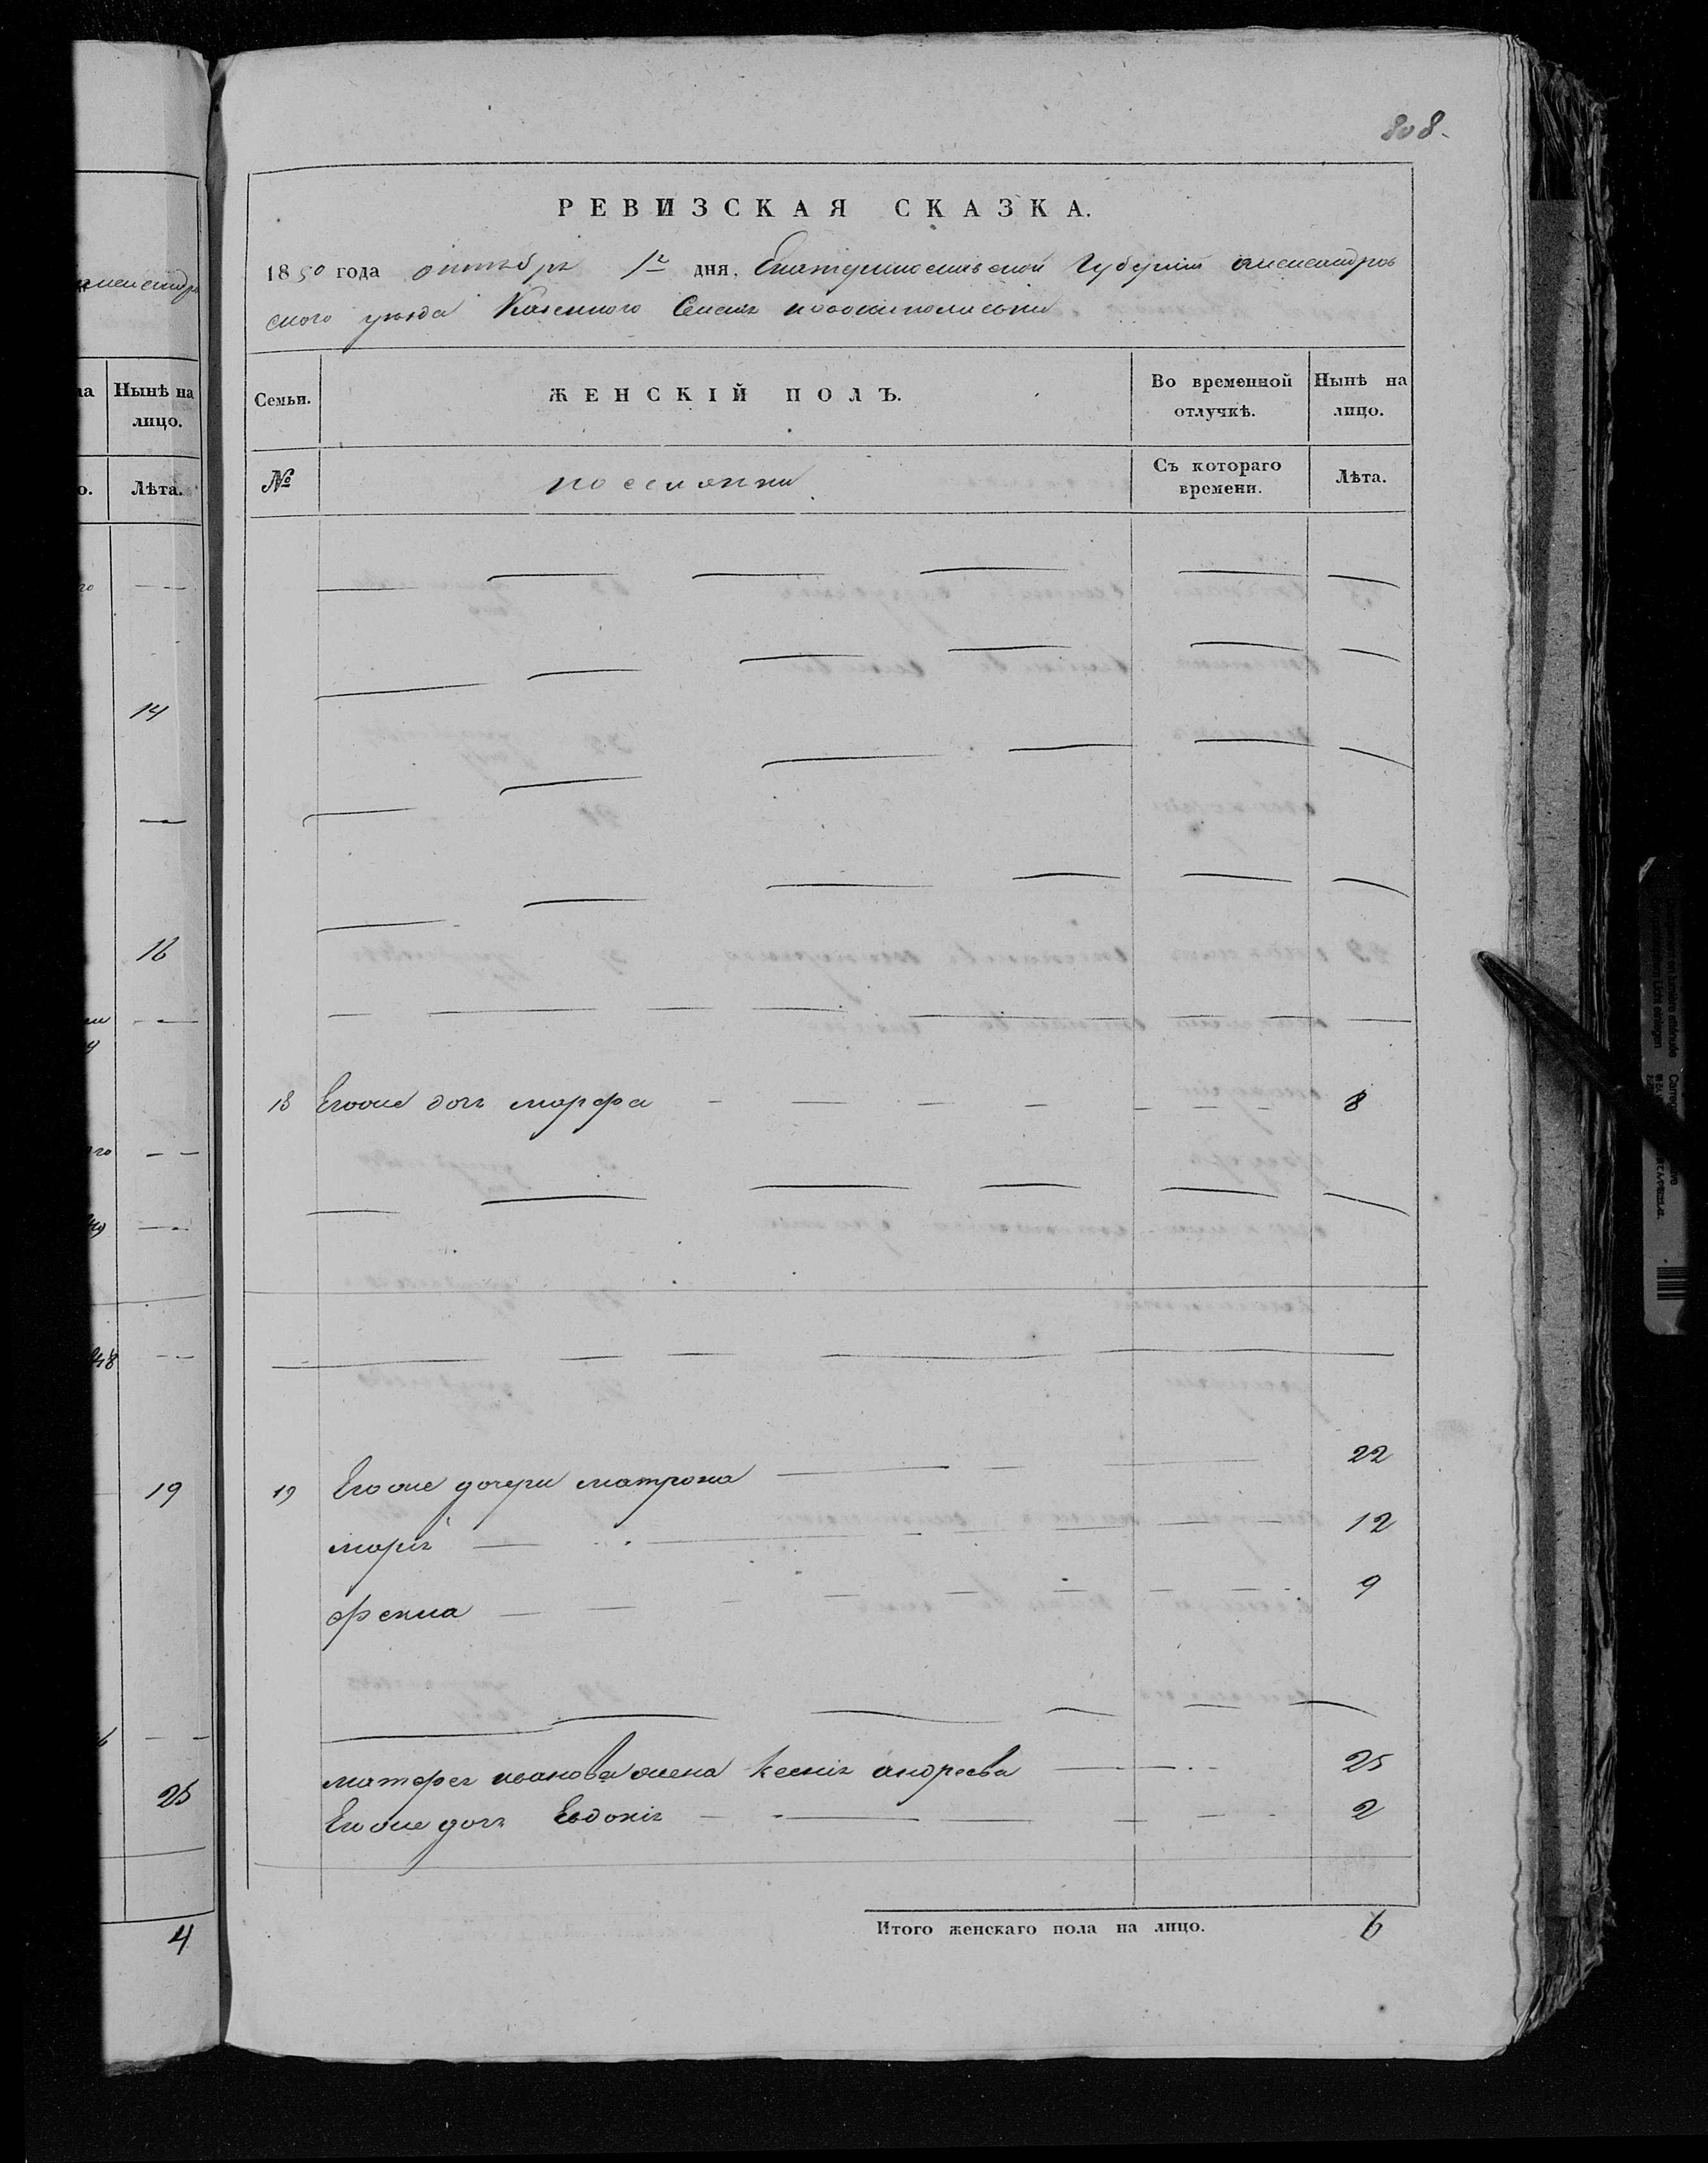 808.
РЕВИЗСКАЯ СКАЗКА.
1850 года октября 1го дня. Екатеринославской Губернии александров
ского уезда Казенного Селения
Семьи.
ЖЕНСКІЙ ПОЛЪ.
Во временной отлучкѣ.
Нынѣ на лицо.
№
поселянки
Съ котораго времени.
Лѣта.
18 Егоже дочь марфа 8
19 Егоже дочери матрона 22
марiя 12
фекла 9
матфея иванова жена ксения андреева 25
Егоже дочь Евдокiя 2
Итого женскаго пола на лицо. 6
Нынѣ на лицо.
Лѣта.
14
16
19
25
4